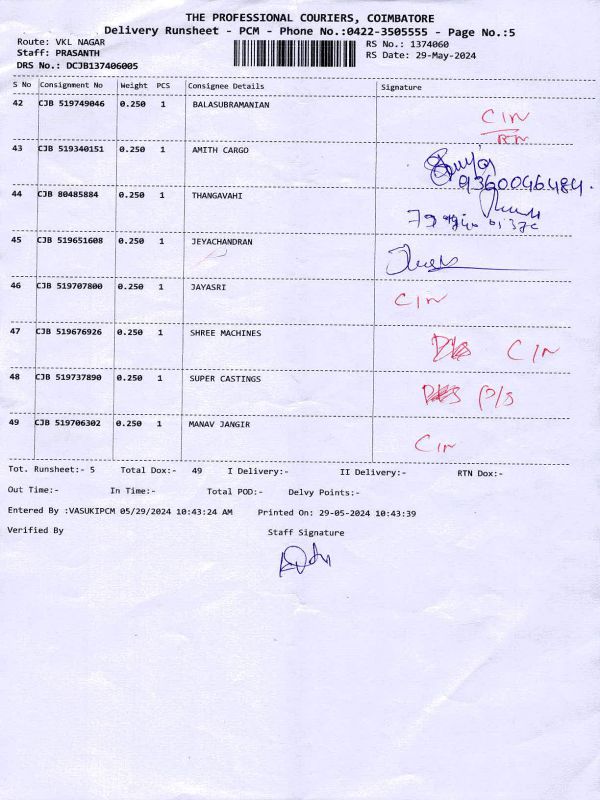 THE PROFESSIONAL COURIERS, COIMBATORE
Delivery Runsheet - PCM - Phone No.:0422-3505555 - Page No.:5
Route: VKL NAGAR RS No.: 1374060
Staff: PRASANTH RS Date: 29-May-2024
DRS No.: DCJB137406005
S No Consignment No Weight PCS Consignee Details Signature
42 CJB 519749046 0.250 1 BALASUBRAMANIAN C/N
RN
43 CJB 519340151 0.250 1 AMITH CARGO
9360046484.
44 CJB 80485884 0.250 1 THANGAVAHI
45 CJB 519651608 0.250 1 JEYACHANDRAN
46 CJB 519707800 0.250 1 JAYASRI C/N
47 CJB 519676926 0.250 1 SHREE MACHINES C/N
48 CJB 519737890 0.250 1 SUPER CASTINGS P/S
49 CJB 519706302 0.250 1 MANAV JANGIR C/N
Tot. Runsheet:- 5 Total Dox:- 49 I Delivery:- II Delivery:- RTN Dox:-
Out Time:- In Time:- Total POD:- Delvy Points:-
Entered By :VASUKIPCM 05/29/2024 10:43:24 AM Printed On: 29-05-2024 10:43:39
Verified By Staff Signature